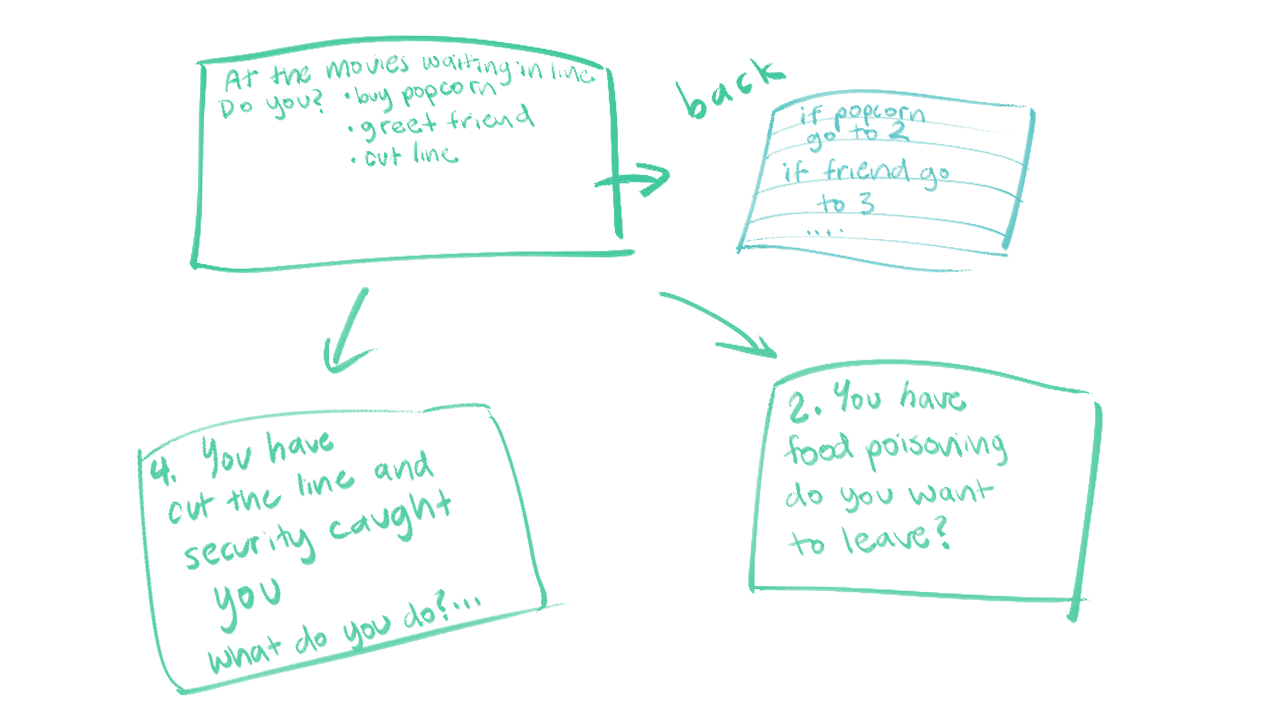 At the movies waiting in line
Do you? • buy popcorn
• greet friend
• cut line
back
if popcorn
go to 2
if friend go
to 3
....
4. You have
cut the line and
security caught
you
what do you do?...
2. You have
food poisoning
do you want
to leave?